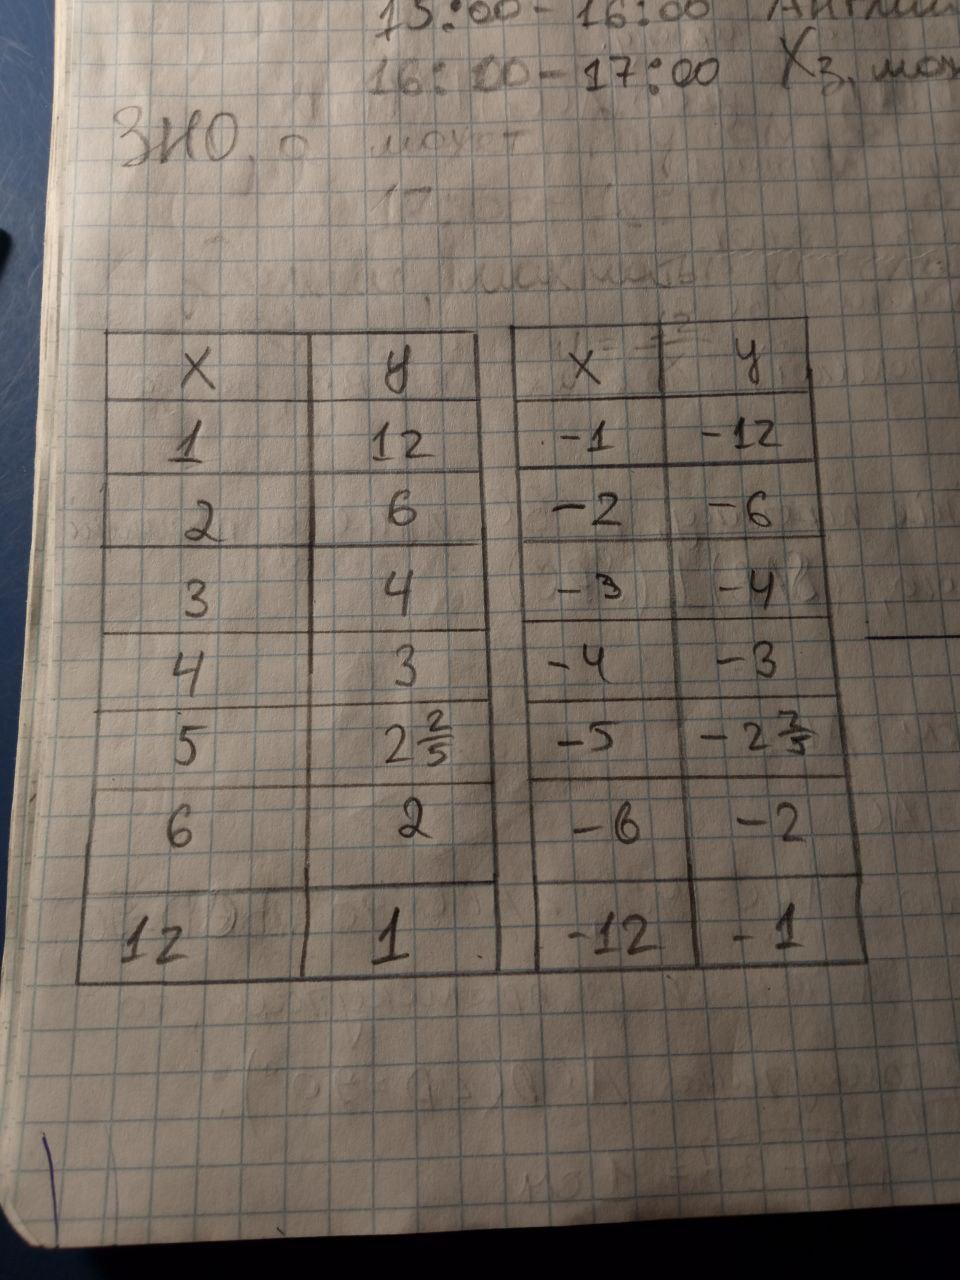 15:00 - 16:00
16:00 - 17:00 Хз,
ЗНО,
может
x y x y
1 12 -1 -12
2 6 -2 -6
3 4 -3 -4
4 3 -4 -3
5 2 2/5 -5 -2 2/5
6 2 -6 -2
12 1 -12 -1